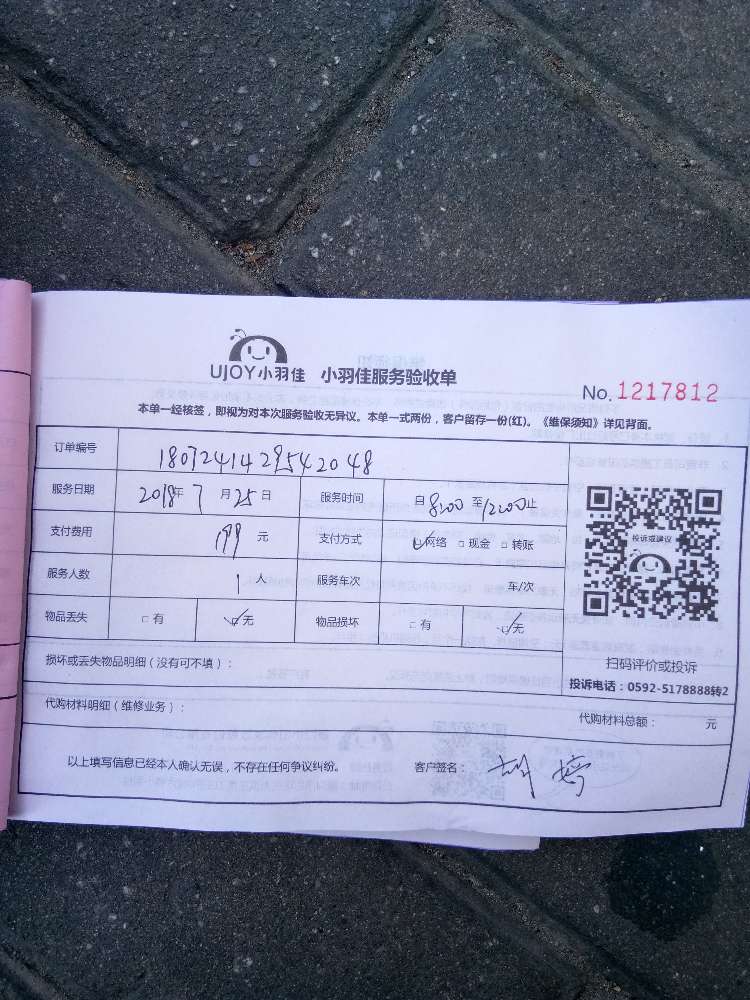 UJOY小羽佳 小羽佳服务验收单
No. 1217812
本单一经核签，即视为对本次服务验收无异议。本单一式两份，客户留存一份(红)。《维保须知》详见背面。
订单编号 1807241429542048
服务日期 2018年7月25日 服务时间 自8:00至12:00止
支付费用 199元 支付方式 ☑网络 □现金 □转账
服务人数 1人 服务车次 车/次
物品丢失 □有 ☑无 物品损坏 □有 ☑无
投诉或建议
扫码评价或投诉
投诉电话：0592-5178888转2
损坏或丢失物品明细（没有可不填）：
代购材料明细（维修业务）： 代购材料总额： 元
以上填写信息已经本人确认无误，不存在任何争议纠纷。 客户签名：胡婷